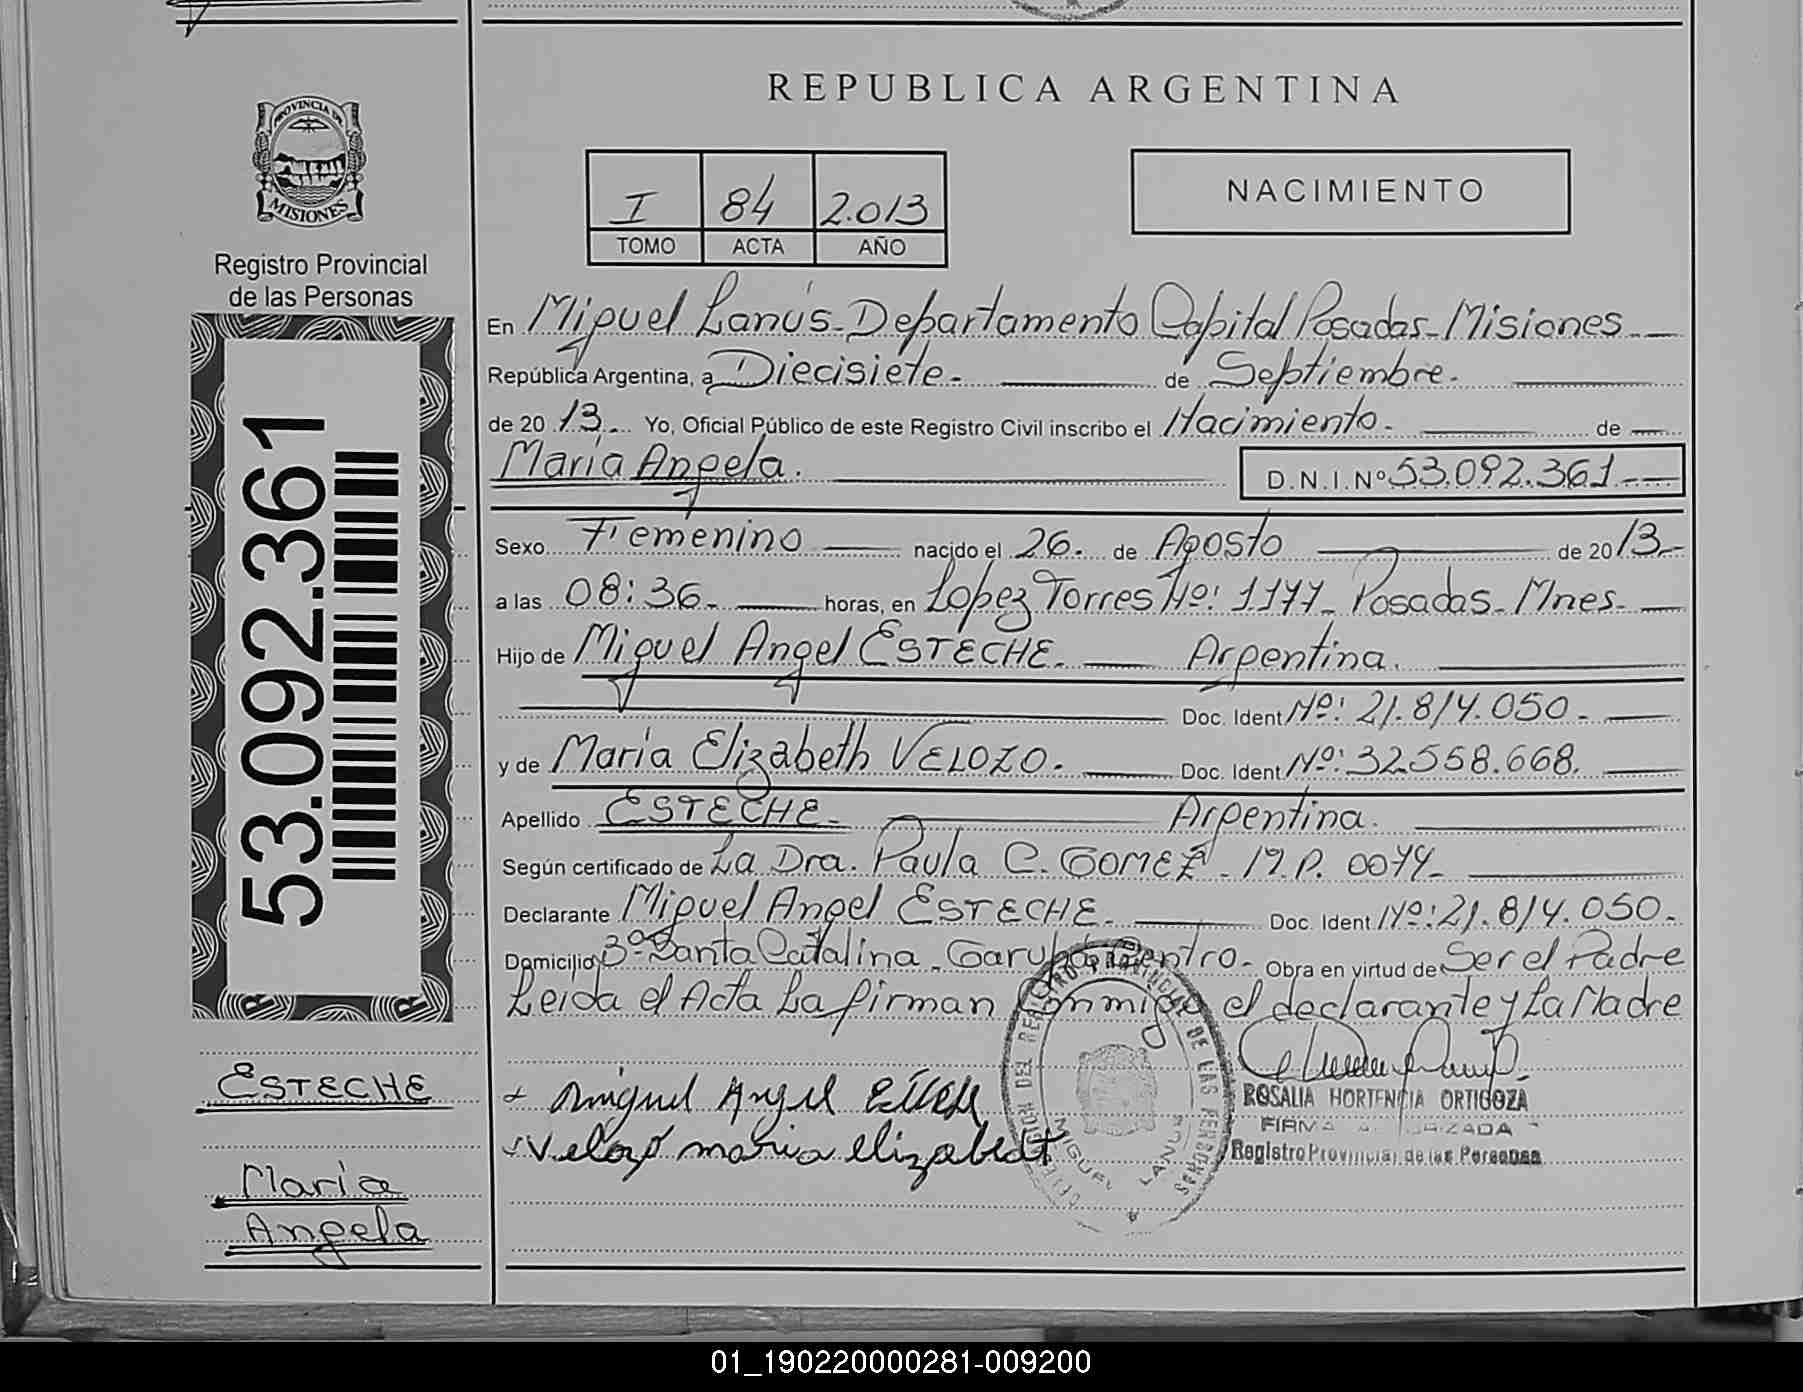 REPUBLICA ARGENTINA
PROVINCIA DE
MISIONES
Registro Provincial
de las Personas
53.092.361
I 84 2.013
TOMO ACTA AÑO
NACIMIENTO
En Miguel Lanús - Departamento Capital Posadas - Misiones
República Argentina, a Diecisiete - de Septiembre -
de 20 13 - Yo, Oficial Público de este Registro Civil inscribo el Nacimiento - de
María Angela. D.N.I. Nº 53.092.361
Sexo Femenino nacido el 26. de Agosto de 2013 -
a las 08:36 - horas, en Lopez Torres Nº: 1177 - Posadas - Mnes -
Hijo de Miguel Angel ESTECHE - Argentina.
Doc. Ident Nº: 21.814.050 -
y de María Elizabeth VELOZO - Doc. Ident Nº: 32.558.668.
Apellido ESTECHE - Argentina.
Según certificado de La Dra. Paula C. GOMEZ - M.P. 0074 -
Declarante Miguel Angel ESTECHE - Doc. Ident Nº: 21.814.050 -
Domicilio Bº Santa Catalina - Garupá Centro - Obra en virtud de Ser el Padre
Leida el Acta La firman Conmigo el declarante y La Madre
ESTECHE
María
Angela
Miguel Angel
Velozo maria elizabedt
DEL REGISTRO PROVINCIAL DE LAS PERSONAS
MIGUEL LANUS
ROSALIA HORTENCIA ORTIGOZA
FIRMA AUTORIZADA
Registro Provincial de las Personas
01_190220000281-009200